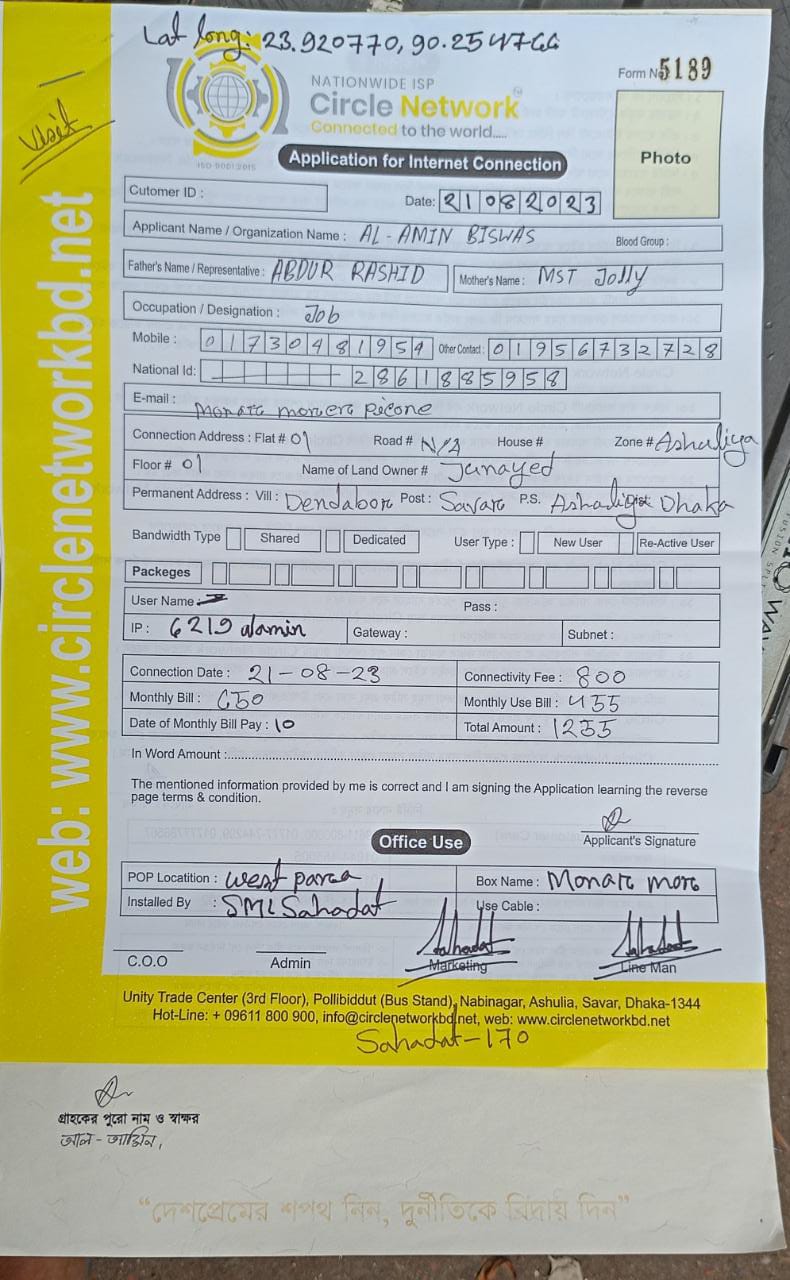 Lat long: 23.920770, 90.254766
Visit
Form No 5189
NATIONWIDE ISP
Circle Network
Connected to the world.....
ISO 9001:2015
Application for Internet Connection
Photo
Cutomer ID :
Date: 21082023
Applicant Name / Organization Name : AL-AMIN BISWAS Blood Group :
Father's Name / Representative : ABDUR RASHID Mother's Name : MST Jolly
Occupation / Designation : Job
Mobile : 01730481954 Other Contact : 01956732728
National Id: 2861885958
E-mail : Monarc morerc
Connection Address : Flat # 01 Road # N/A House # Zone # Ashuliya
Floor # 01 Name of Land Owner # Junayed
Permanent Address : Vill : Dendaborc Post : Savarc P.S. Ashuligia Dhaka
Bandwidth Type Shared Dedicated User Type : New User Re-Active User
Packeges
User Name : Pass :
IP : 6219 alamin Gateway : Subnet :
Connection Date : 21-08-23 Connectivity Fee : 800
Monthly Bill : 650 Monthly Use Bill : 455
Date of Monthly Bill Pay : 10 Total Amount : 1255
In Word Amount :
The mentioned information provided by me is correct and I am signing the Application learning the reverse
page terms & condition.
Applicant's Signature
Office Use
POP Locatition : west parca Box Name : Monarc morc
Installed By : SML Sahadat Use Cable :
Sahadat Sahadat
C.O.O Admin Marketing Line Man
Unity Trade Center (3rd Floor), Pollibiddut (Bus Stand), Nabinagar, Ashulia, Savar, Dhaka-1344
Hot-Line: + 09611 800 900, info@circlenetworkbd.net, web: www.circlenetworkbd.net
Sahadat-170
web: www.circlenetworkbd.net
গ্রাহকের পুরো নাম ও স্বাক্ষর
আল-আমিন,
“দেশপ্রেমের শপথ নিন, দুর্নীতিকে বিদায় দিন”